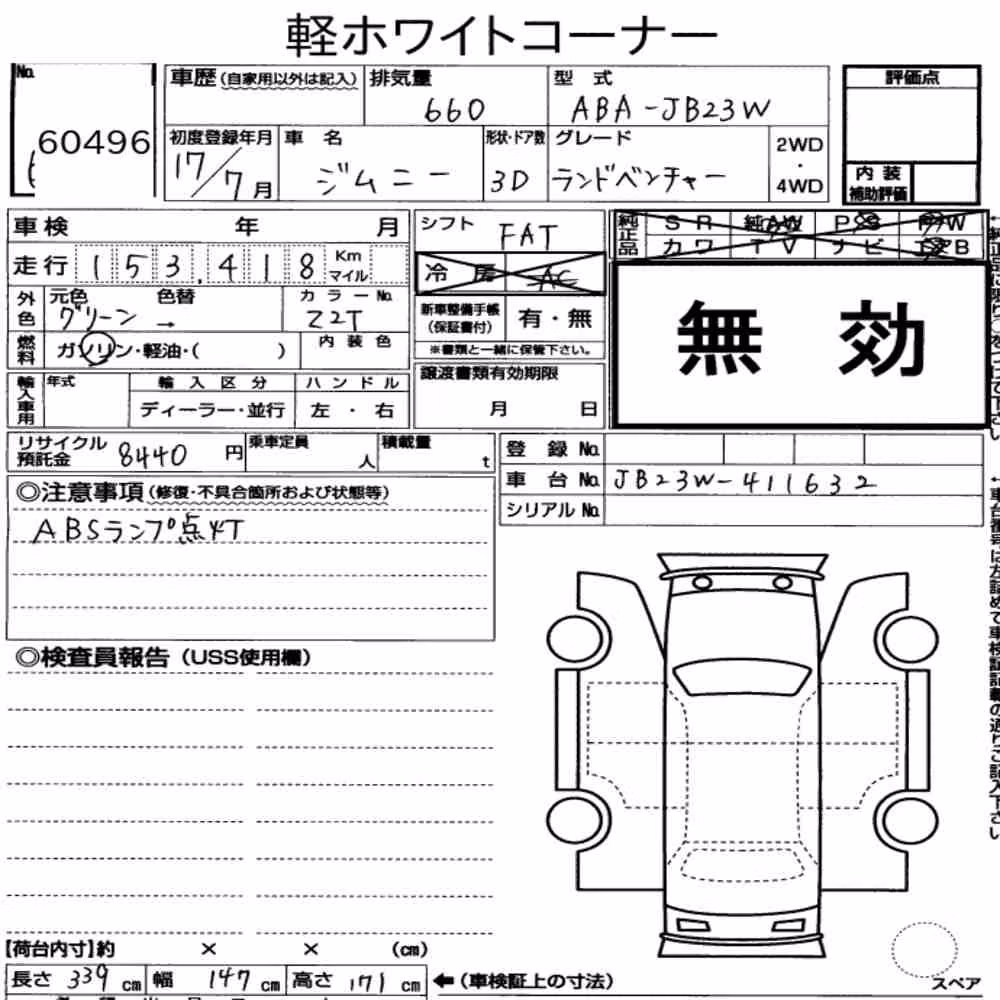 軽ホワイトコーナー
No. 60496
車歴(自家用以外は記入) 排気量 660 型式 ABA-JB23W 評価点
初度登録年月 17/7月 車名 ジムニー 形状・ドア数 3D グレード ランドベンチャー 2WD・4WD
内装補助評価
車検 年 月 シフト FAT 純正品 SR 純AW PS PW
走行 153,418 Km マイル 冷房 AC カワ TV ナビ
外色 元色 グリーン 色替 → カラーNo. Z2T 新車整備手帳(保証書付) 有・無
無効
燃料 ガソリン・軽油・( ) 内装色 ※書類と一緒に保管下さい。
輸入車用 年式 輸入区分 ハンドル 譲渡書類有効期限
ディーラー・並行 左・右 月 日
リサイクル預託金 8440円 乗車定員 人 積載量 t
登録No.
車台No. JB23W-411632
シリアルNo.
◎注意事項(修復・不具合箇所および状態等)
ABSランプ点灯
◎検査員報告(USS使用欄)
【荷台内寸】約 × × (cm)
長さ 339 cm 幅 147 cm 高さ 171 cm ←(車検証上の寸法)
スペア
←車台番号は左詰めで車検証記載の通りご記入下さい